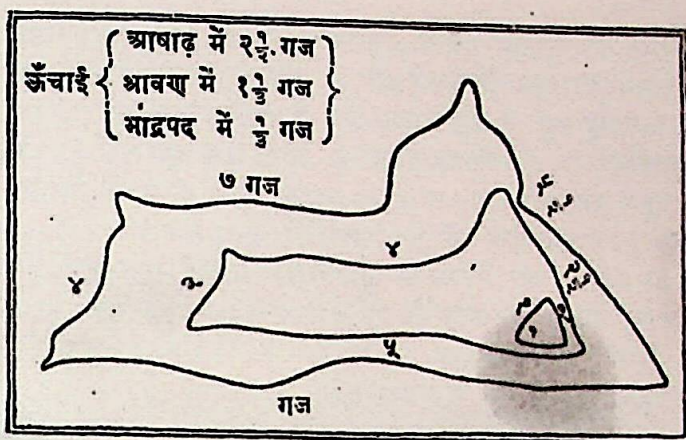 ऊँचाई
आषाढ़ में २ १/२ गज
श्रावण में १ १/३ गज
भाद्रपद में १/३ गज
७ गज
४
४
३
५
गज